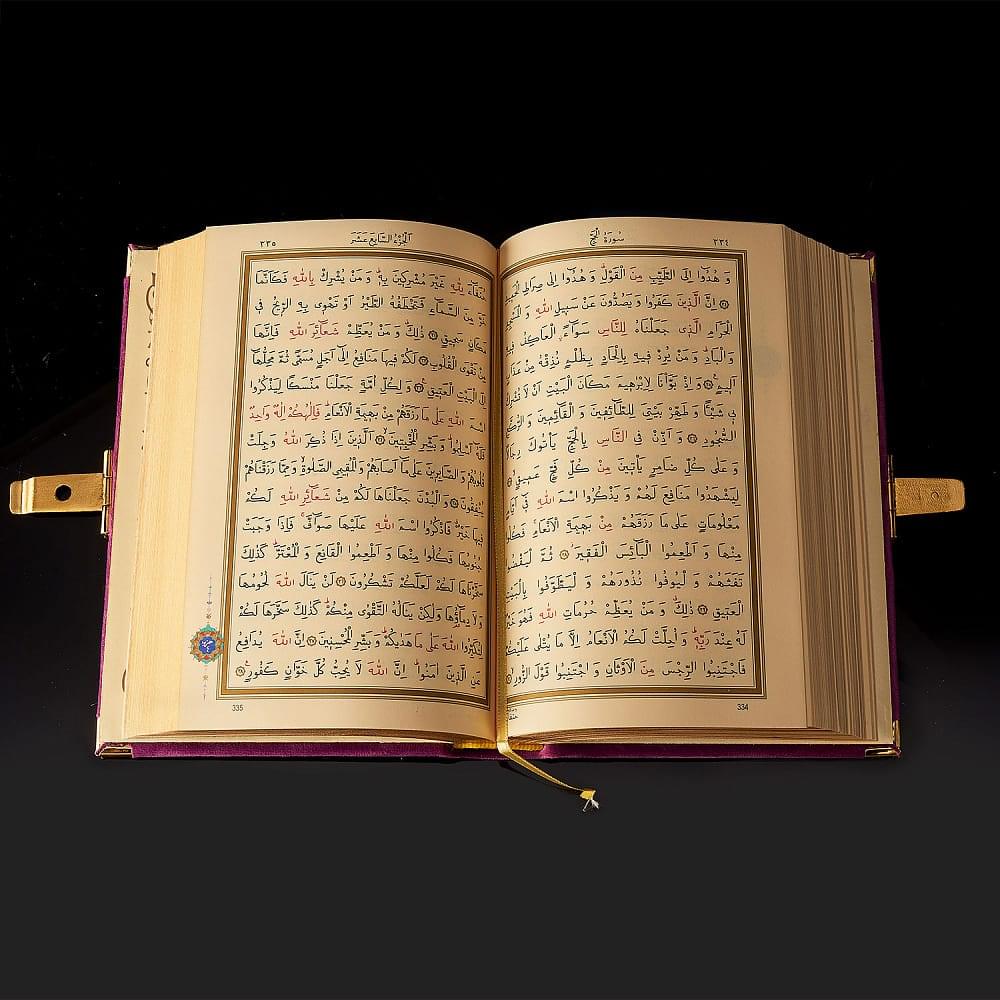 ٣٣٤
سُورَةُ الْحَجِّ
وَ هُدُٓوا اِلَى الطَّيِّبِ مِنَ الْقَوْلِۚ وَ هُدُٓوا اِلٰى صِرَاطِ
﴿٢٤﴾ اِنَّ الَّذٖينَ كَفَرُوا وَ يَصُدُّونَ عَنْ سَبٖيلِ اللّٰهِ وَ
الْحَرَامِ الَّذٖى جَعَلْنَاهُ لِلنَّاسِ سَوَٓاءًۨ الْعَاكِفُ فٖيهِ
وَ الْبَادِۜ وَ مَنْ يُرِدْ فٖيهِ بِاِلْحَادٍ بِظُلْمٍ نُذِقْهُ مِنْ عَذَابٍ
اَلٖيمٍ ﴿٢٥﴾ وَ اِذْ بَوَّاْنَا لِاِبْرٰهٖيمَ مَكَانَ الْبَيْتِ اَنْ لَا تُشْرِكْ
بٖى شَيْـًٔا وَ طَهِّرْ بَيْتِىَ لِلطَّٓائِفٖينَ وَ الْقَٓائِمٖينَ وَ الرُّكَّعِ
السُّجُودِ ﴿٢٦﴾ وَ اَذِّنْ فِى النَّاسِ بِالْحَجِّ يَاْتُوكَ رِجَالًا
وَ عَلٰى كُلِّ ضَامِرٍ يَاْتٖينَ مِنْ كُلِّ فَجٍّ عَمٖيقٍ ﴿٢٧﴾
لِيَشْهَدُوا مَنَافِعَ لَهُمْ وَ يَذْكُرُوا اسْمَ اللّٰهِ فٖٓى اَيَّامٍ
مَعْلُومَاتٍ عَلٰى مَا رَزَقَهُمْ مِنْ بَهٖيمَةِ الْاَنْعَامِۚ فَكُلُوا
مِنْهَا وَ اَطْعِمُوا الْبَٓائِسَ الْفَقٖيرَ ﴿٢٨﴾ ثُمَّ لْيَقْضُوا
تَفَثَهُمْ وَ لْيُوفُوا نُذُورَهُمْ وَ لْيَطَّوَّفُوا بِالْبَيْتِ
الْعَتٖيقِ ﴿٢٩﴾ ذٰلِكَۗ وَ مَنْ يُعَظِّمْ حُرُمَاتِ اللّٰهِ فَهُوَ خَيْرٌ
لَهُ عِنْدَ رَبِّهٖۜ وَ اُحِلَّتْ لَكُمُ الْاَنْعَامُ اِلَّا مَا يُتْلٰى عَلَيْكُمْ
فَاجْتَنِبُوا الرِّجْسَ مِنَ الْاَوْثَانِ وَ اجْتَنِبُوا قَوْلَ الزُّورِ ﴿٣٠﴾
334
اَلْجُزْءُ السَّابِعَ عَشَرَ
٣٣٥
حُنَفَٓاءَ لِلّٰهِ غَيْرَ مُشْرِكٖينَ بِهٖۜ وَ مَنْ يُشْرِكْ بِاللّٰهِ فَكَاَنَّمَا
خَرَّ مِنَ السَّمَٓاءِ فَتَخْطَفُهُ الطَّيْرُ اَوْ تَهْوٖى بِهِ الرّٖيحُ فٖى
مَكَانٍ سَحٖيقٍ ﴿٣١﴾ ذٰلِكَۗ وَ مَنْ يُعَظِّمْ شَعَٓائِرَ اللّٰهِ فَاِنَّهَا
مِنْ تَقْوَى الْقُلُوبِ ﴿٣٢﴾ لَكُمْ فٖيهَا مَنَافِعُ اِلٰٓى اَجَلٍ مُسَمًّى ثُمَّ مَحِلُّهَٓا
اِلَى الْبَيْتِ الْعَتٖيقِ ﴿٣٣﴾ وَ لِكُلِّ اُمَّةٍ جَعَلْنَا مَنْسَكًا لِيَذْكُرُوا
اسْمَ اللّٰهِ عَلٰى مَا رَزَقَهُمْ مِنْ بَهٖيمَةِ الْاَنْعَامِۜ فَاِلٰهُكُمْ اِلٰهٌ وَاحِدٌ
فَلَهُٓ اَسْلِمُواۜ وَ بَشِّرِ الْمُخْبِتٖينَ ﴿٣٤﴾ اَلَّذٖينَ اِذَا ذُكِرَ اللّٰهُ وَجِلَتْ
قُلُوبُهُمْ وَ الصَّابِرٖينَ عَلٰى مَٓا اَصَابَهُمْ وَ الْمُقٖيمِى الصَّلٰوةِۙ وَ مِمَّا رَزَقْنَاهُمْ
يُنْفِقُونَ ﴿٣٥﴾ وَ الْبُدْنَ جَعَلْنَاهَا لَكُمْ مِنْ شَعَٓائِرِ اللّٰهِ لَكُمْ
فٖيهَا خَيْرٌۗ فَاذْكُرُوا اسْمَ اللّٰهِ عَلَيْهَا صَوَٓافَّۚ فَاِذَا وَجَبَتْ
جُنُوبُهَا فَكُلُوا مِنْهَا وَ اَطْعِمُوا الْقَانِعَ وَ الْمُعْتَرَّۜ كَذٰلِكَ
سَخَّرْنَاهَا لَكُمْ لَعَلَّكُمْ تَشْكُرُونَ ﴿٣٦﴾ لَنْ يَنَالَ اللّٰهَ لُحُومُهَا
وَ لَا دِمَٓاؤُ۬هَا وَلٰكِنْ يَنَالُهُ التَّقْوٰى مِنْكُمْۜ كَذٰلِكَ سَخَّرَهَا لَكُمْ
لِتُكَبِّرُوا اللّٰهَ عَلٰى مَا هَدٰيكُمْۜ وَ بَشِّرِ الْمُحْسِنٖينَ ﴿٣٧﴾ اِنَّ اللّٰهَ يُدَافِعُ
عَنِ الَّذٖينَ اٰمَنُواۜ اِنَّ اللّٰهَ لَا يُحِبُّ كُلَّ خَوَّانٍ كَفُورٍ ﴿٣٨﴾
335